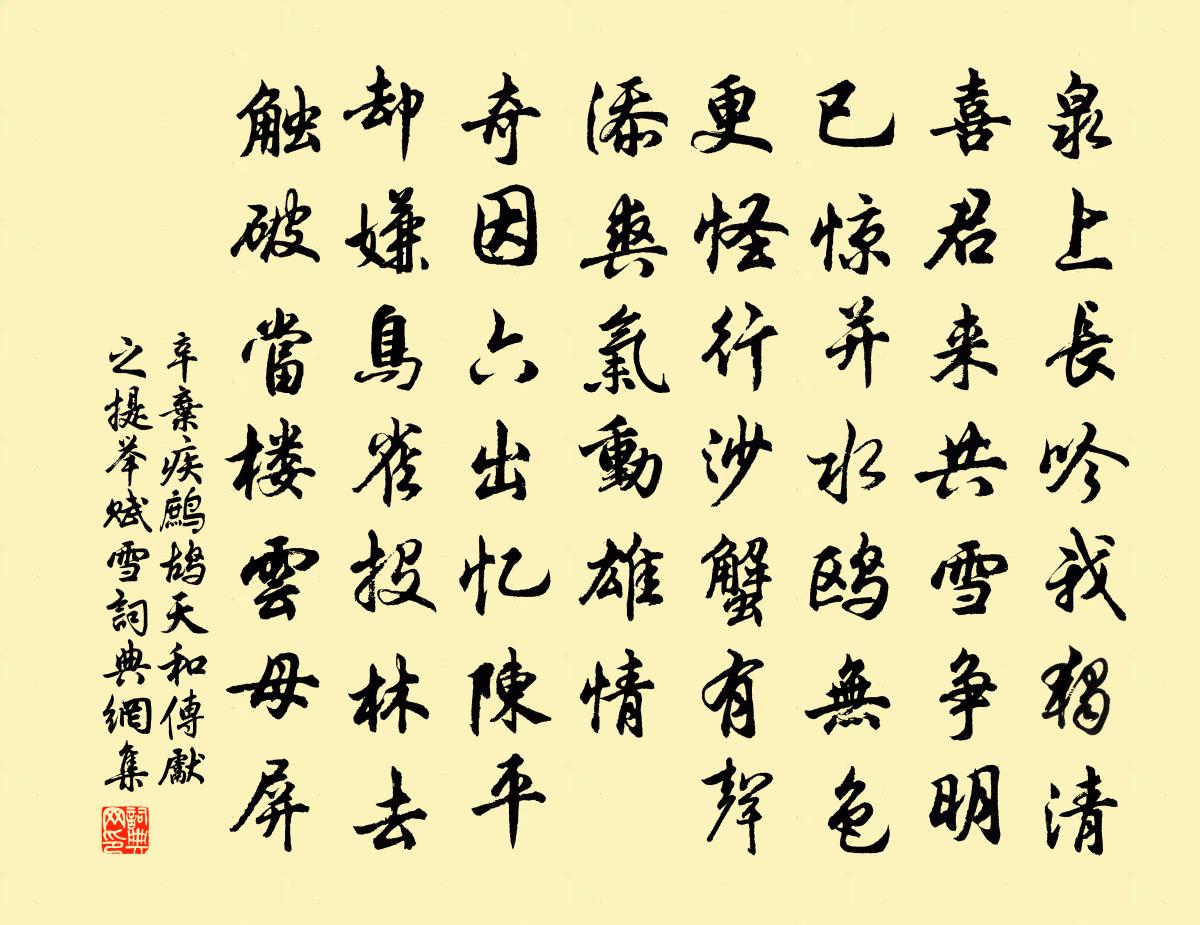 泉上長吟我獨清
喜君来共雪争明
已惊并水鸥無色
更怪行沙蟹有聲
添爽氣動雄情
奇因六出忆陳平
却嫌鳥雀投林去
触破當楼雲母屏
辛棄疾鷓鸪天和傳獻
之提举赋雪詞典網集
詞典
网印